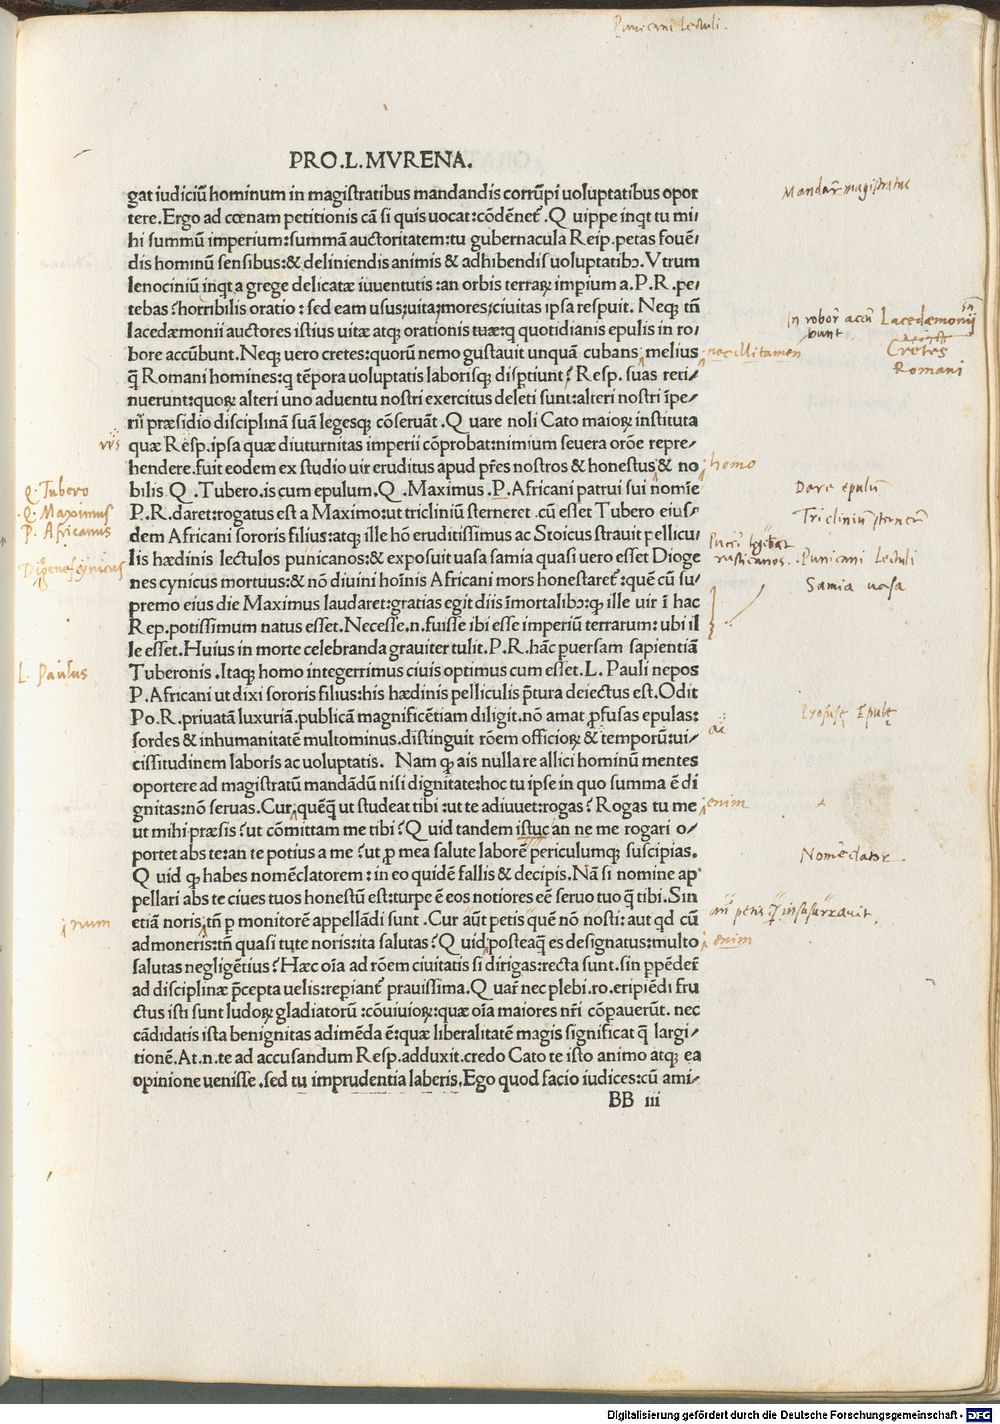 Punicani Lectuli.
PRO.L.MVRENA.
gat iudiciū hominum in magistratibus mandandis corrūpi uoluptatibus opor
tere.Ergo ad cœnam petitionis cā si quis uocat:cōdēnet᷑.Q uippe inqt tu mi/
hi summū imperium:summā auctoritatem:tu gubernacula Reip.petas fouē/
dis hominū sensibus:& deliniendis animis & adhibendis uoluptatibꝰ.Vtrum
lenociniū inqt a grege delicatæ iuuentutis :an orbis terraꝝ imperium a.P.R.pe/
tebas ?horribilis oratio : sed eam usus;uita;mores;ciuitas ipsa respuit. Neqꝫ tn̄
lacedæmonii auctores istius uitæ atqꝫ orationis tuæ:q quotidianis epulis in ro/
bore accūbunt.Neqꝫ uero cretes:quorū nemo gustauit unquā cubans melius
q̄ Romani homines:q tēpora uoluptatis laborisqꝫ disptiunt? Resp. suas reti/
nuerunt:quoꝝ alteri uno aduentu nostri exercitus deleti sunt:alteri nostri īpe/
rii præsidio disciplinā suā legesqꝫ cōseruāt.Q uare noli Cato maioꝝ instituta
quæ Resp.ipsa quæ diuturnitas imperii cōprobat:nimium seuera orōe repre/
hendere.fuit eodem ex studio uir eruditus apud pr̄es nostros & honestus & no
bilis Q .Tubero.is cum epulum.Q .Maximus .P.Africani patrui sui nomīe
P.R.daret:rogatus est a Maximo:ut tricliniū sterneret .cū esset Tubero eius/
dem Africani sororis filius:atqꝫ ille hō eruditissimus ac Stoicus strauit pellicu/
lis hædinis lectulos punicanos:& exposuit uasa samia quasi uero esset Dioge
nes cynicus mortuus:& nō diuini hoīnis Africani mors honestaret᷑:quē cū su/
premo eius die Maximus laudaret:gratias egit diis īmortalibꝰ:qꝫ ille uir ī hac
Rep.potissimum natus esset.Necesse.n.fuisse ibi esse imperiū terrarum: ubi il
le esset.Huius in morte celebranda grauiter tulit.P.R.hāc puersam sapientiā
Tuberonis .Itaqꝫ homo integerrimus ciuis optimus cum esset.L. Pauli nepos
P.Africani ut dixi sororis filius:his hædinis pelliculis p̄tura deiectus est.Odit
Po.R.priuatā luxuriā.publicā magnificētiam diligit.nō amat pfusas epulas:
sordes & inhumanitatē multominus.distinguit rōem officioꝝ & temporū:ui/
cissitudinem laboris ac uoluptatis. Nam qꝫ ais nulla re allici hominū mentes
oportere ad magistratū mandādū nisi dignitate:hoc tu ipse in quo summa ē di
gnitas:nō seruas.Cur quēqꝫ ut studeat tibi :ut te adiuuet:rogas? Rogas tu me
ut mihi præsis ?ut cōmittam me tibi ?Q uid tandem istuc an ne me rogari o/
portet abs te:an te potius a me ?ut p mea salute laborē periculumqꝫ suscipias.
Q uid qꝫ habes nomēclatorem : in eo quidē fallis & decipis.Nā si nomine ap
pellari abs te ciues tuos honestū est:turpe ē eos notiores eē seruo tuo q̄ tibi.Sin
etiā noris tn̄ p monitorē appellādi sunt .Cur aūt petis quē nō nosti: aut qd cū
admoneris:tn̄ quasi tute noris:ita salutas ?Q uid posteaq̄ es designatus:multo
salutas negligētius?Hæc oīa ad rōem ciuitatis si dirigas:recta sunt.sin ppēder̄
ad disciplinæ p̄cepta uelis:repiant᷑ prauissima.Q uar̄ nec plebi.ro.eripiēdi fru
ctus isti sunt ludoꝝ gladiatorū :cōuiuioꝝ:quæ oīa maiores nr̄i cōpauerūt. nec
cādidatis ista benignitas adimēda ē:quæ liberalitatē magis significat q̄ largi/
tionē.At.n.te ad accusandum Resp.adduxit.credo Cato te isto animo atqꝫ ea
opinione uenisse .sed tu imprudentia laberis.Ego quod facio iudices:cū ami/
BB iii
Mandar̄ magistratus
Lacedæmonii
Cretes
Romani
nec illi tamen
homo
Q. Tubero
Q. Maximus
P. Africanus
Diogenes cynicus
L. Paulus
Dare epulū
Punicani Lectuli
Samia uasa
rusticanos.
Profusę Epulę
ac
enim
Nomēclator
num
enim
Digitalisierung gefördert durch die Deutsche Forschungsgemeinschaft - DFG